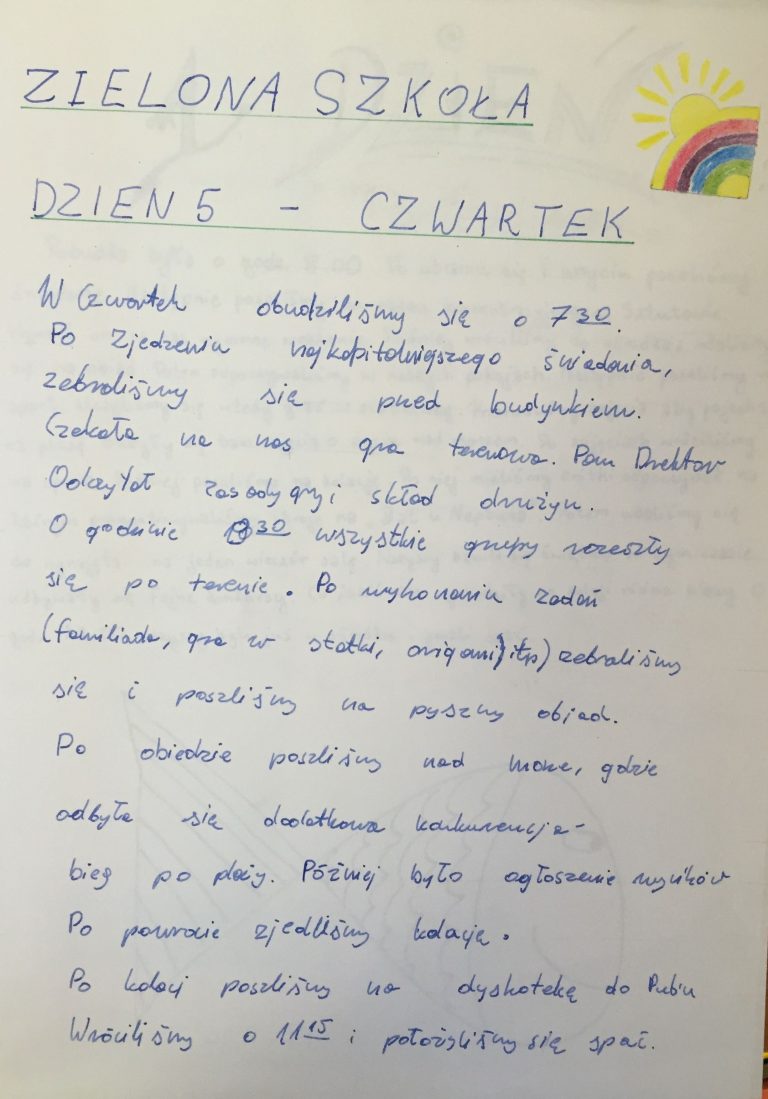 ZIELONA SZKOŁA
DZIEN 5 - CZWARTEK
W Czwartek obudziliśmy się o 7 30.
Po Zjedzeniu najkapitalniejszego śniadania,
zebraliśmy się przed budynkiem.
Czekała na nas gra terenowa. Pan Drektor
Odczytał zasady gry i skład drużyn
O godzinie 30 wszystkie grupy rozeszły
się po terenie. Po wykonaniu zadań
(familiada, gra w statki, origami) itp) zebraliśmy
się i poszliśmy na pyszny obiad.
Po obiedzie poszliśmy nad morze, gdzie
odbyła się dodatkowa konkurencja-
bieg po plaży. Później było ogłoszenie wyników
Po powrocie zjedliśmy kolację.
Po kolacji poszliśmy na dyskotekę do Pub'u
Wróciliśmy o 11 15 i położyliśmy się spać.